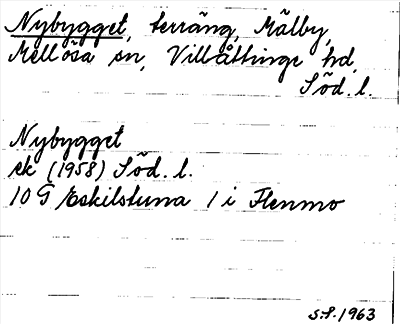 Nybygget, terräng, Mälby,
Mellösa sn, Villåttinge hd,
Söd. l.
Nybygget
ek (1958) Söd. l.
10 G Eskilstuna 1 i Flenmo
S.S. 1963